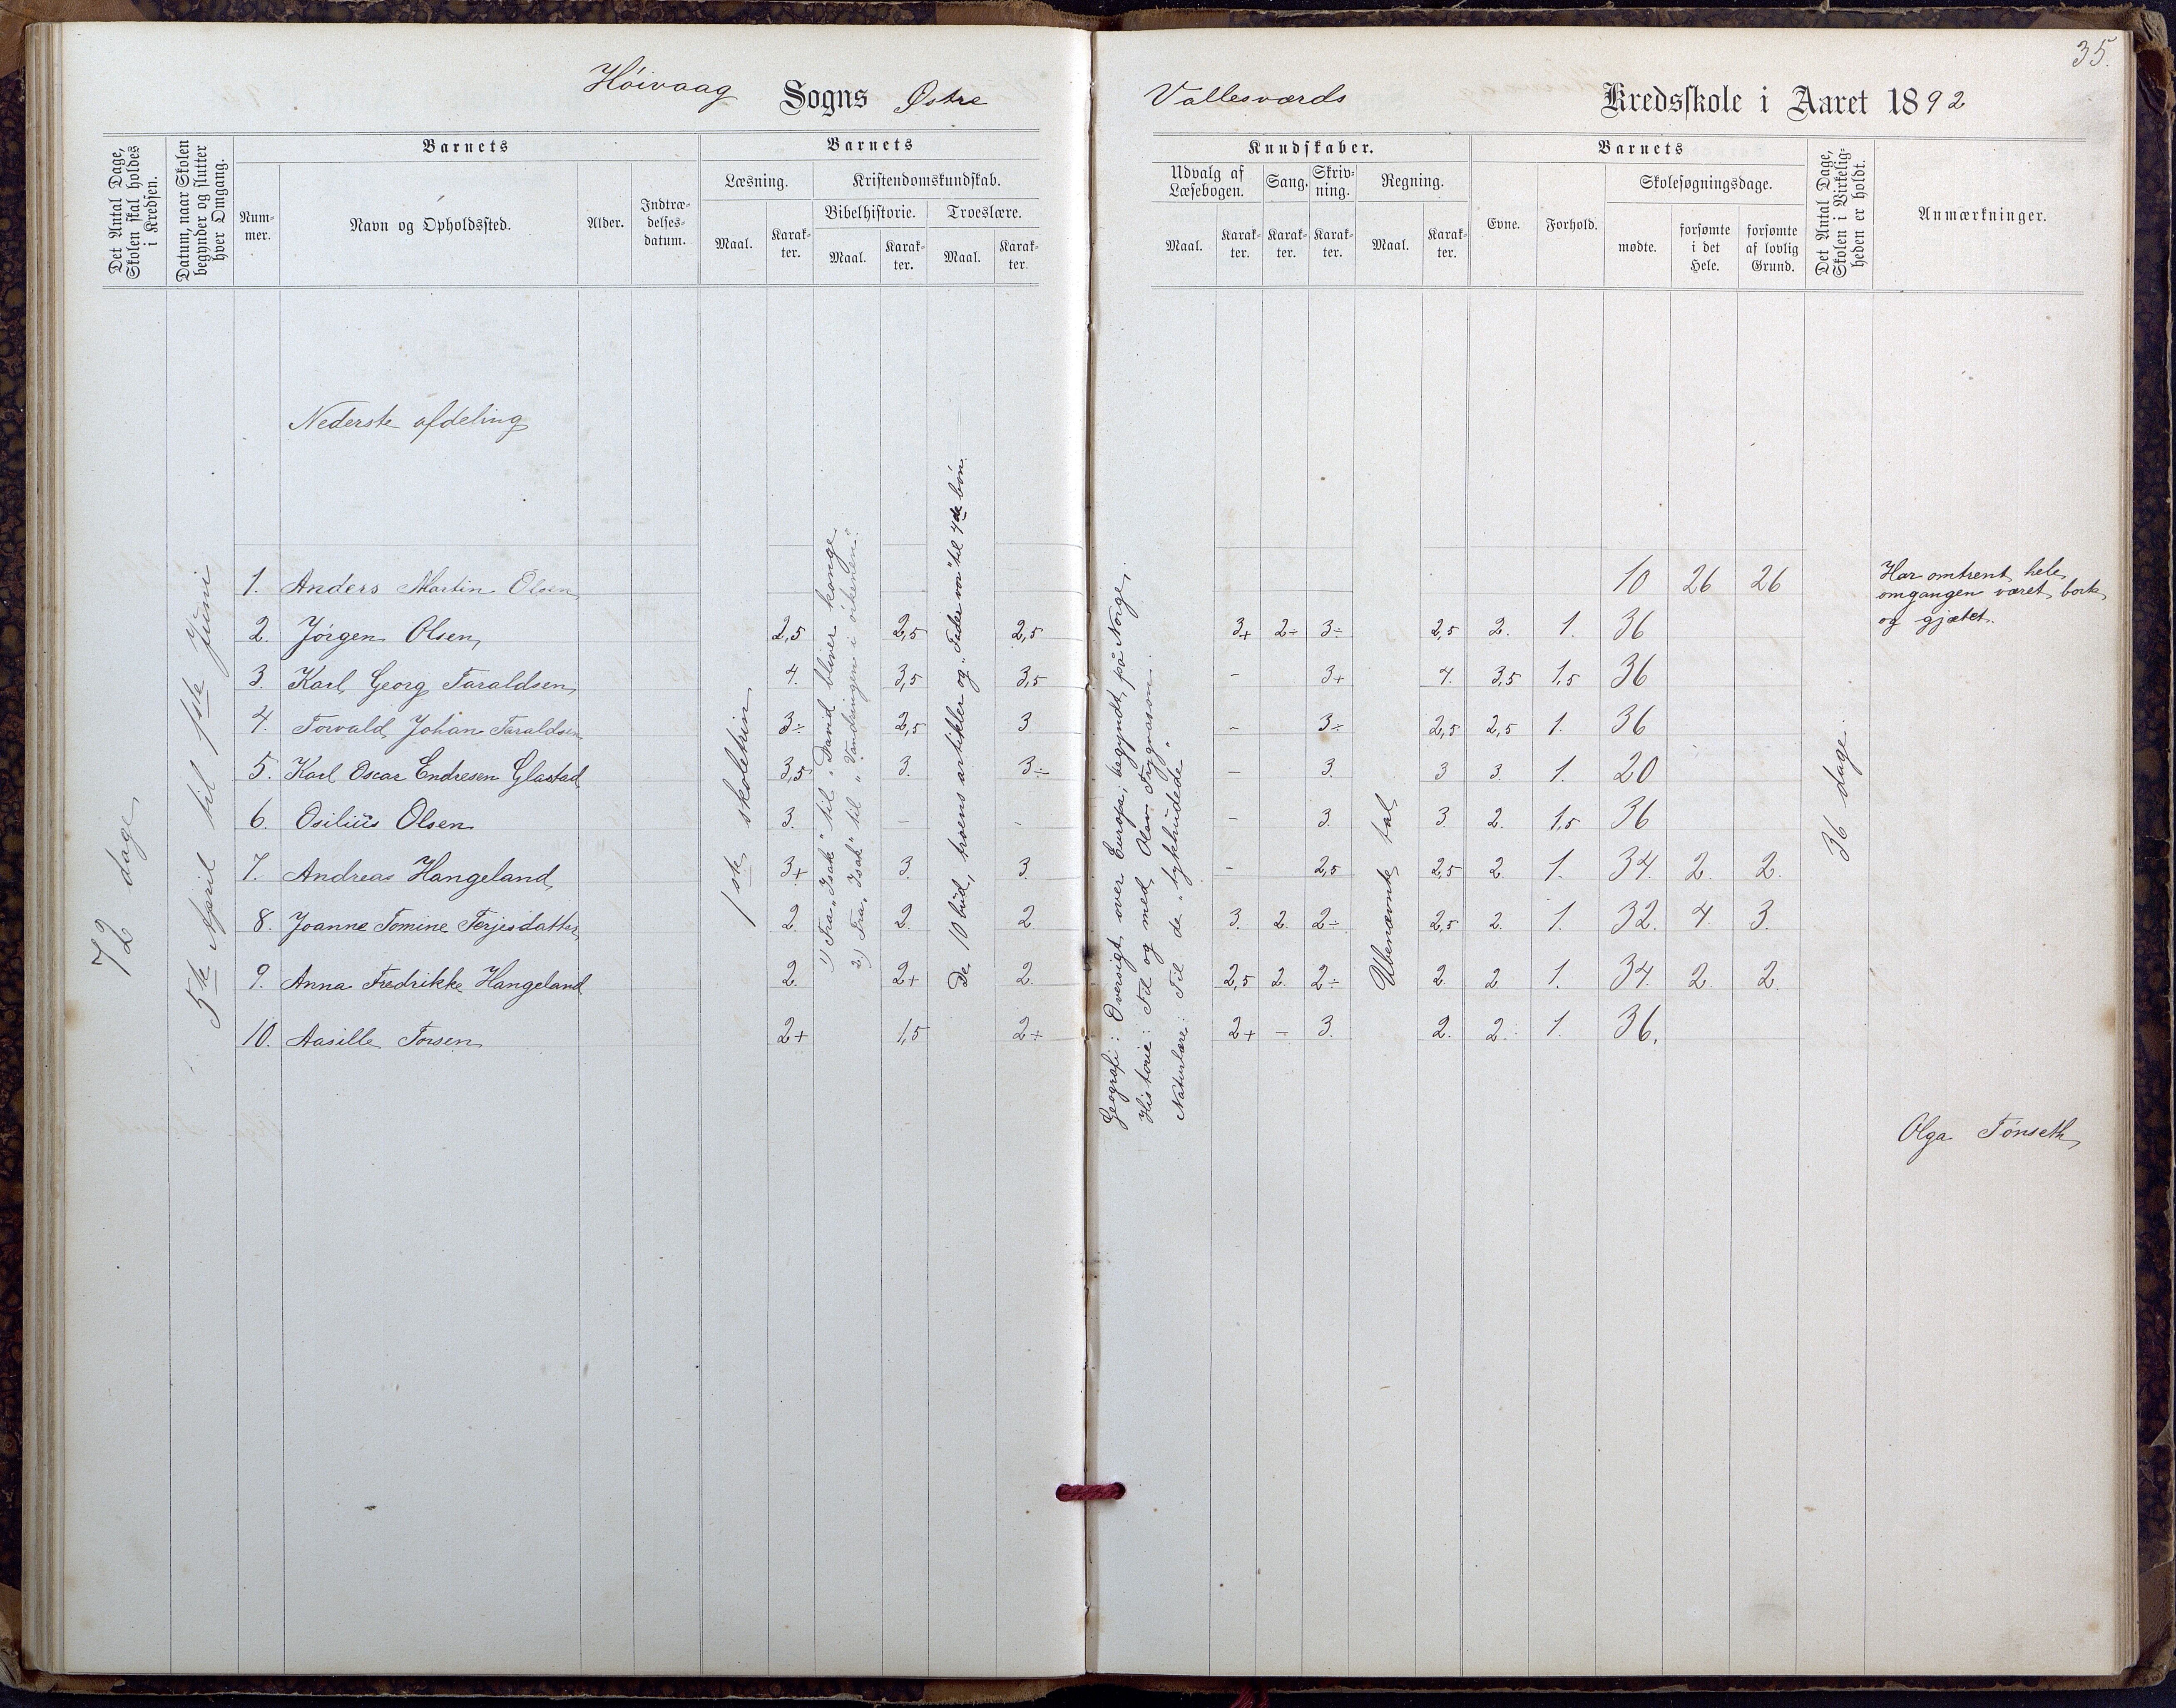 35.
Höivaag Sogns Østre Vallesværds Kredsskole i Aaret 1892
Det Antal Dage, Skolen skal holdes i Kredsen.
Datum, naar Skolen begynder og slutter hver Omgang.
Barnets
Num-
mer.
Navn og Opholdssted.
Alder.
Indtræ-
delses-
datum.
Barnets
Læsning.
Maal.
Karak-
ter.
Kristendomskundskab.
Bibelhistorie.
Maal.
Karak-
ter.
Troeslære.
Maal.
Karak-
ter.
Kundskaber.
Udvalg af
Læsebogen.
Maal.
Karak-
ter.
Sang.
Karak-
ter.
Skriv-
ning.
Karak-
ter.
Regning.
Maal.
Karak-
ter.
Barnets
Evne.
Forhold.
Skolesøgningsdage.
mødte.
forsømte
i det
Hele.
forsømte
af lovlig
Grund.
Det Antal Dage, Skolen i Virkelig-
heden er holdt.
Anmærkninger.
72 dage
5te April til 1ste juni
Nederste afdeling
1ste skoletrin
1) Fra "Isak" til "David bliver konge
2) Fra "Isak" til "Vandringen i örkenen".
De 10 bud, troens artikler og "Fader vor" til 4de bön.
Geografi: Oversigt over Europa; begyndt på Norge.
Historie: Til og med Olav Trygvason.
Naturlære: Til de "tykhudede"
Ubenævnte tal
36 dage.
1. Anders Martin Olsen 10 26 26 Har omtrent hele
omgangen været bort
og gjætet.
2. Jörgen Olsen 2,5 2,5 2,5 3+ 2÷ 3÷ 2,5 2. 1. 36
3. Karl Georg Taraldsen 4. 3,5 3,5 - 3+ 4. 3,5 1,5 36
4. Torvald Johan Taraldsen 3÷ 2,5 3 - 3÷ 2,5 2,5 1. 36
5. Karl Oscar Endresen Glastad 3,5 3. 3÷ - 3. 3 3. 1. 20
6. Osilius Olsen 3. - - - 3. 3. 2. 1,5 36
7. Andreas Hangeland 3+ 3. 3. - 2,5 2,5 2. 1. 34. 2. 2.
8. Joanne Tomine Terjesdatter 2. 2. 2. 3. 2. 2÷ 2,5 2. 1. 32. 4. 3.
9. Anna Fredrikke Hangeland 2. 2+ 2. 2,5 2. 2÷ 2. 2 1. 34. 2. 2.
10. Aasille Torsen 2+ 1,5 2+ 2+ - 3. 2. 2. 1. 36.
Olga Tönseth